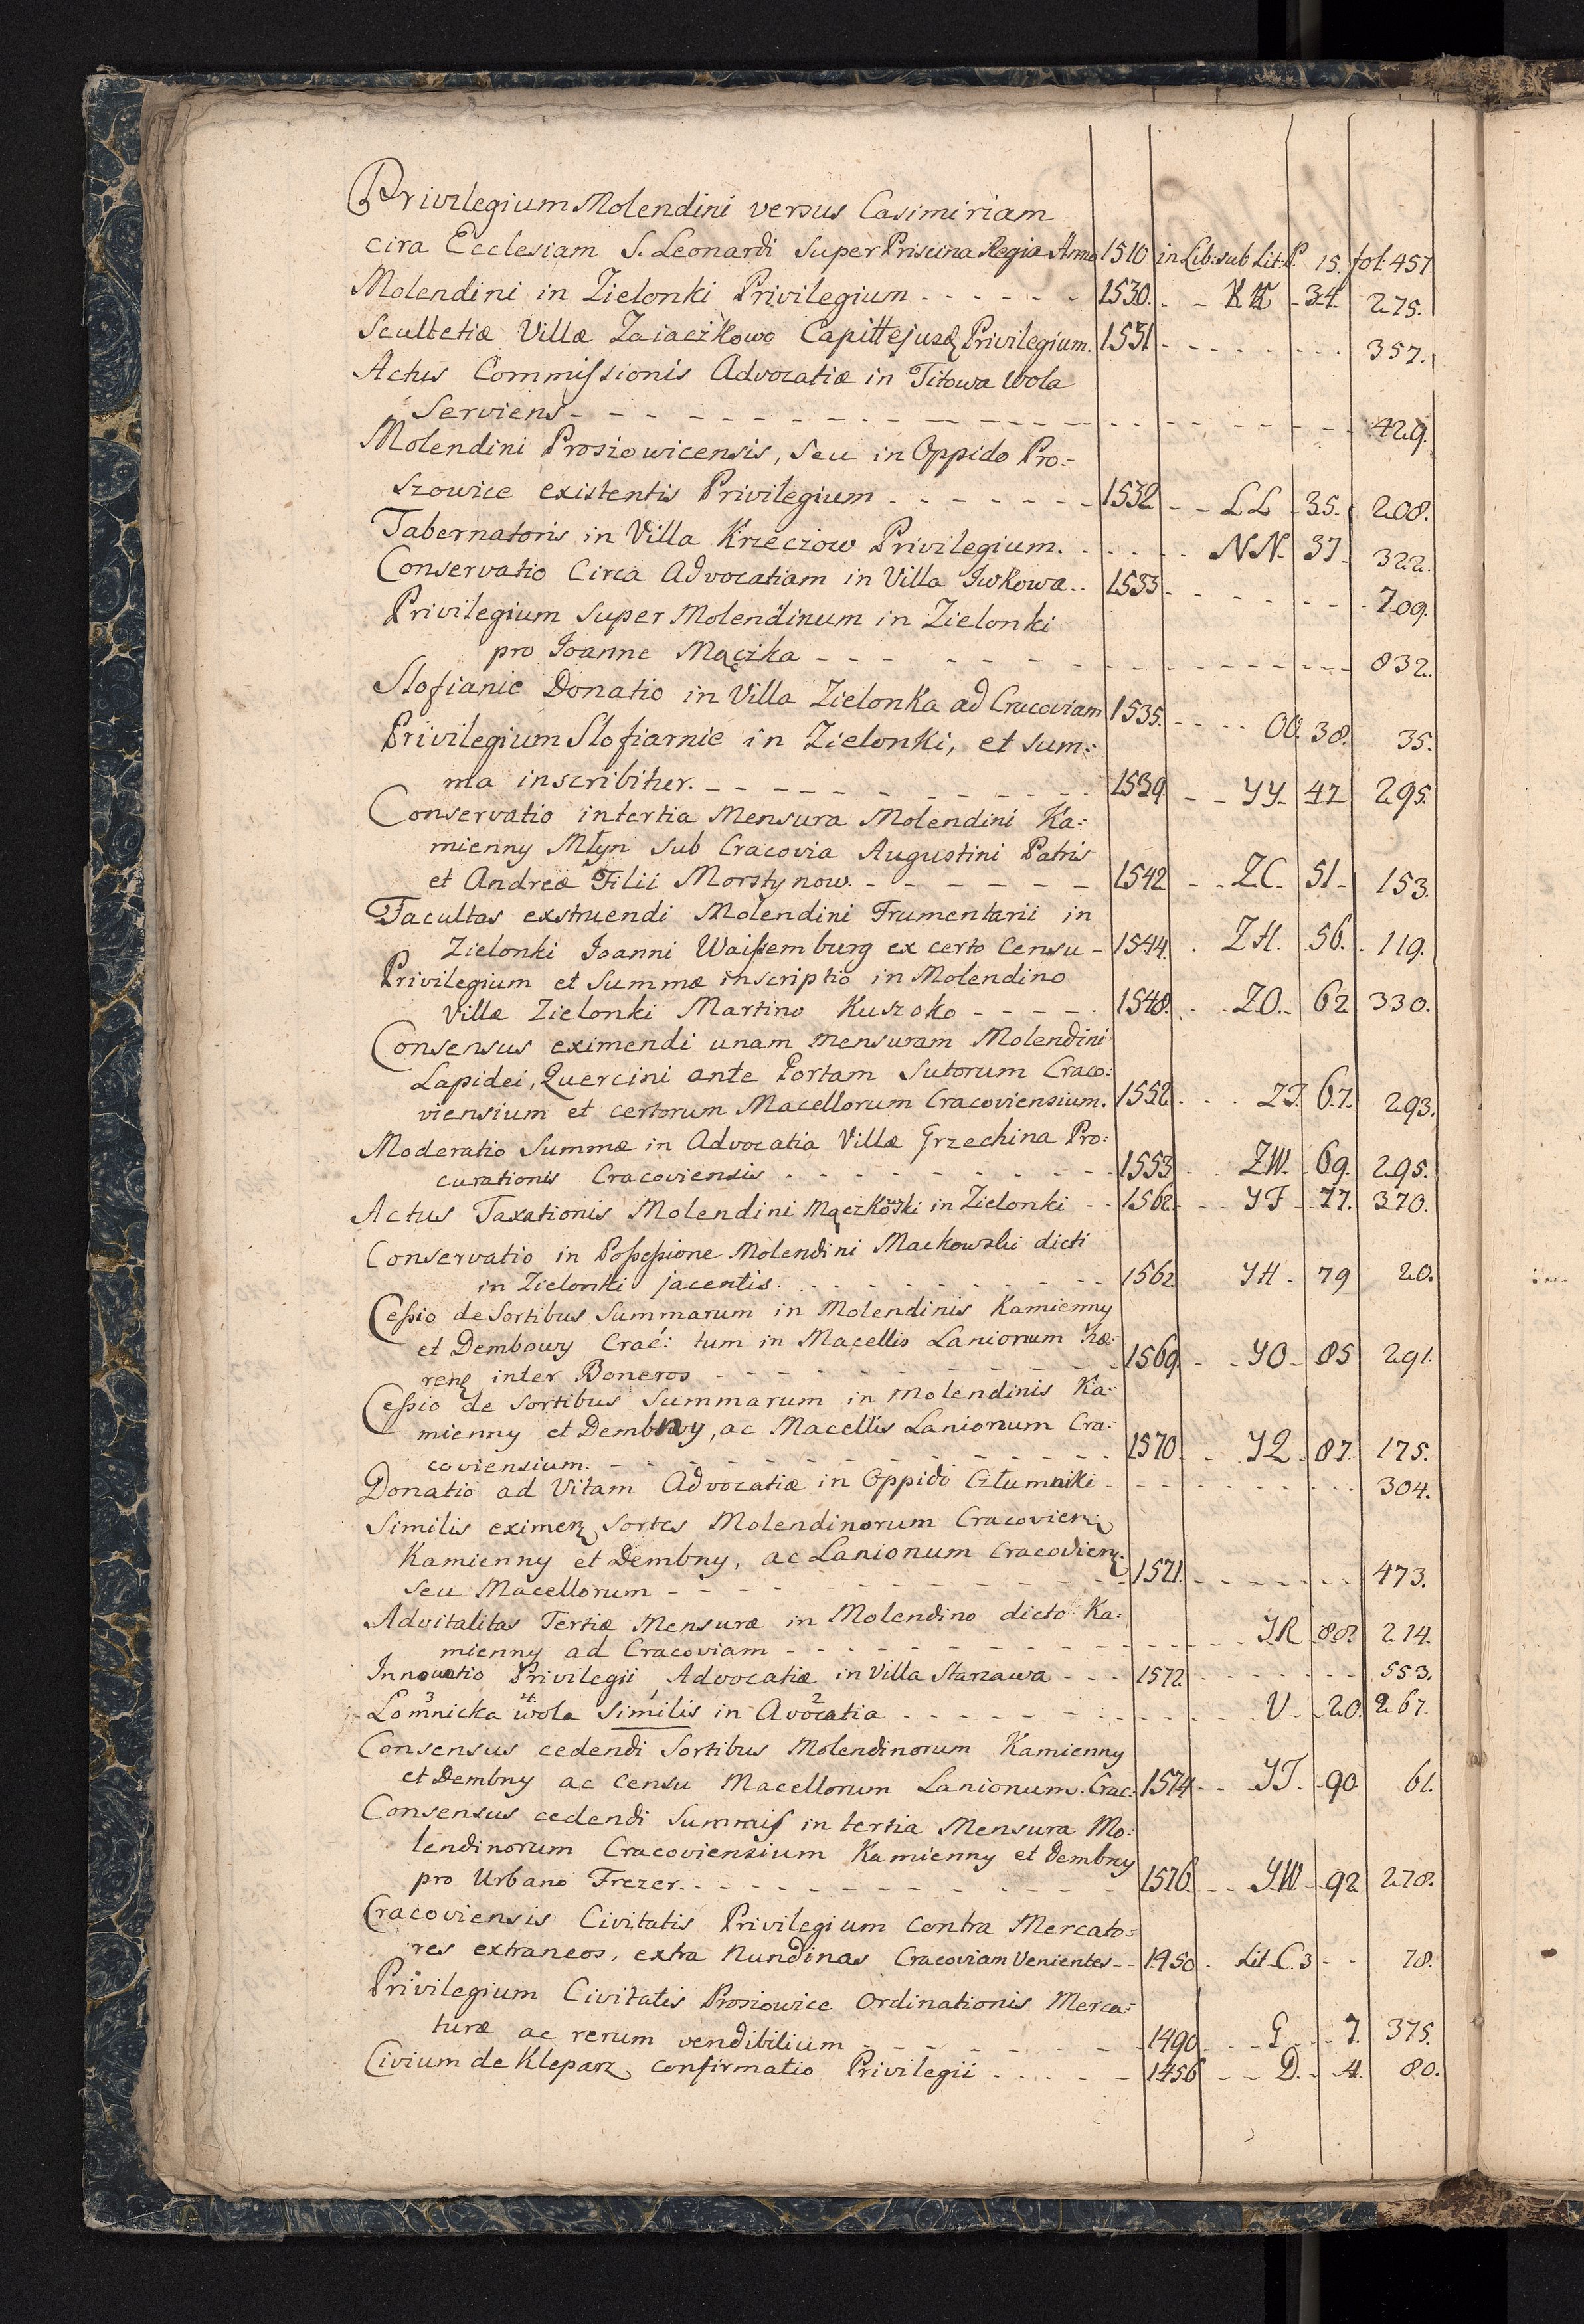 Privilegium Molendini versus Casimiriam
cira Ecclesiam S. Leonardi Super Priscina Regia Anno 1510 in Lib: sub Lit: P. 15. fol. 457.
Molendini in Zielonki Privilegium - - - - - - 1530. - - KK - 34 275.
Scultetiæ Villæ Zaiaczkowo Capitt ejusq Privilegium. 1531 - - - - - - - 357.
Actus Commissionis Advocatiæ in Titowa Wola
Serviens - - - - - - - - - - - - - - - - - - 429.
Molendini Prosiowicensis, seu in Oppido Pro:
szowice existentis Privilegium - - - - - - - 1532 - - LL - 35. 208.
Tabernatoris in Villa Krzeczow Privilegium. - - - - - NN. 37 - 322.
Conservatio Circa Advocatiam in Villa Iwkowa.. 1533 - - - - - - - 709.
Privilegium super Molendinum in Zielonki
pro Joanne Mączka - - - - - - - - - - - - - - - - 832.
Slofianie Donatio in Villa Zielonka ad Cracoviam 1535. - - - - OO. 38. 35.
Privilegium Slofiarnie in Zielonki, et sum:
ma inscribitur. - - - - - - - - - - - 1539. - - YY - 47 295.
Conservatio in tertia Mensura Molendini Ka:
mienny Młyn sub Cracovia Augustini Patris
et Andreæ Filii Morstynow. - - - - - - 1542 - - ZC - 51 - 153.
Facultas exstruendi Molendini Frumentarii in
Zielonki Joanni Waissemburg ex certo Censu - 1544. - ZH. 56. - 119.
Privilegium et Summæ inscriptio in Molendino
Villæ Zielonki Martino Kuszoko - - - - - 1548. - - ZO. - 62 330.
Consensus eximendi unam mensuram Molendini
Lapidei, Quercini ante Portam Sutorum Craco:
viensium et certorum Macellorum Cracoviensium. 1552 - - - ZT. 67. 293.
Moderatio Summæ in Advocatia Villæ Grzechina Pro:
curationis Cracoviensis - - - - - - - - - - 1553 - - ZW. 69. 295.
Actus Taxationis Molendini Mączkowski in Zielonki - - 1562 - - YF - 77. 370.
Conservatio in Possessione Molendini Mackowski dicti
in Zielonki jacentis. - - - - - - - - - 1562 YH - 79 20.
Cessio de Sortibus Summarum in Molendinis Kamienny
et Dembowy Crac: tum in Macellis Lanionum Hæ:
renq inter Boneros - - - - - - - - - - 1569. - - YO - 85 291.
Cessio de Sortibus Summarum in Molendinis Ka:
mienny et Dembny, ac Macellis Lanionum Cra:
coviensium. - - - - - - - - - - - - - 1570 - - YQ - 87. 175.
Donatio ad Vitam Advocatiæ in Oppido Człumniki - - - - - - - - - - 304.
Similis eximen Sortes Molendinorum Cracovien:
Kamienny et Dembny, ac Lanionum Cracovien:
seu Macellorum - - - - - - - - - - - - 1571. - - - - - - - 473.
Advitalitas Tertiæ Mensuræ in Molendino dicto Ka:
mienny ad Cracoviam - - - - - - - - - - - - - - - YR 88. 214.
Innovatio Privilegii Advocatiæ in Villa Starzawa - - - 1572 - - - - - - - 553.
3 4 1 2
Lomnicka wola Similis in Avocatia - - - - - - - - - - - V - - 20. 267.
Consensus cedendi Sortibus Molendinorum Kamienny
et Dembny ac Censu Macellorum Lanionum. Crac: 1574 - - YT. - 90 61.
Consensus cedendi Summis in tertia Mensura Mo:
lendinorum Cracoviensium Kamienny et Dembny
pro Urbano Frezer. - - - - - - - - - - - 1576. - - YW - 92 278.
Cracoviensis Civitatis Privilegium contra Mercato:
res extraneos, extra Nundinas Cracoviam Venientes - - 1450 - Lit. C. 3 - - - 78.
Privilegium Civitatis Prosiowice Ordinationis Merca:
turæ ac rerum vendibilium - - - - - - - 1490 - - - G - - 7. 375.
Civium de Kleparz confirmatio Privilegii - - - - - 1456 - - D. - 4. 80.